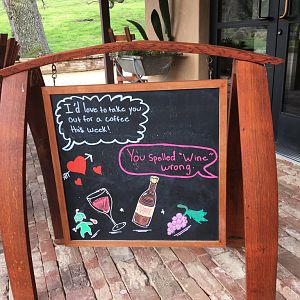 I'd love to take you
out for a coffee
this week!
You spelled "Wine"
wrong.